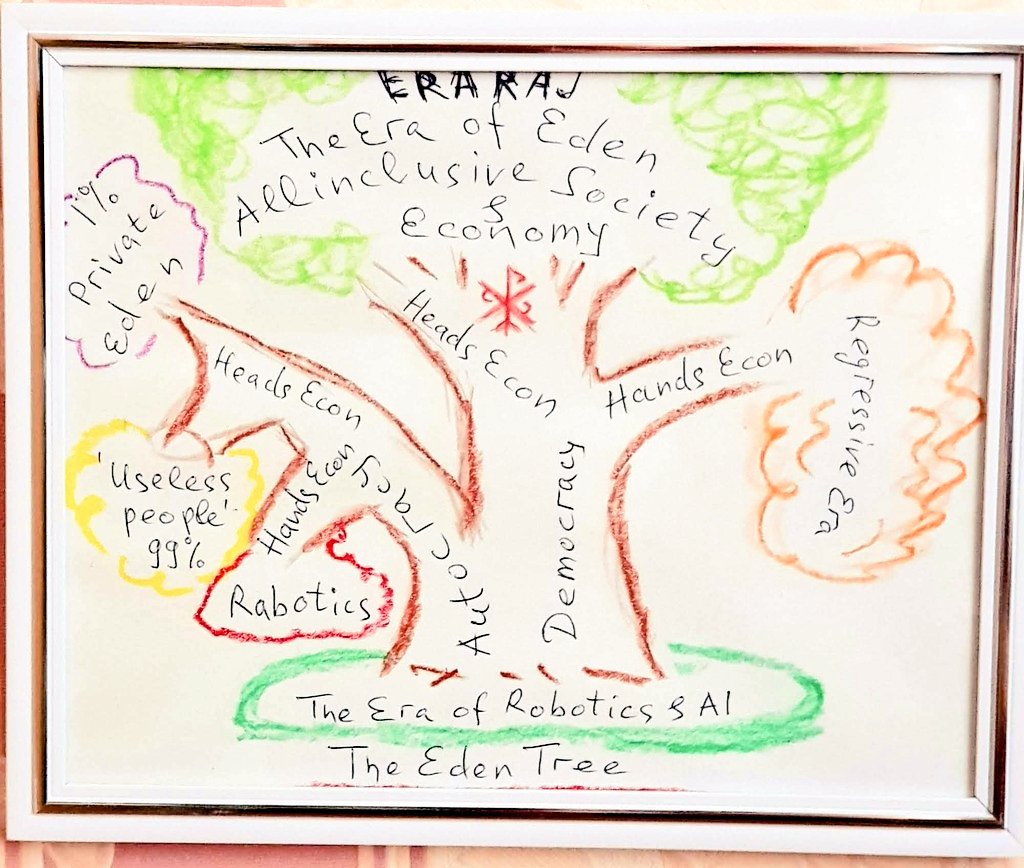 ERA RAJ
The Era of Eden
Allinclusive Society
&
Economy
1%
Private
Eden
Heads Econ
Heads Econ
Hands Econ
Regressive Era
'Useless
people'
99%
Hands Econ
Rabotics
Autocracy
Democracy
The Era of Robotics & AI
The Eden Tree